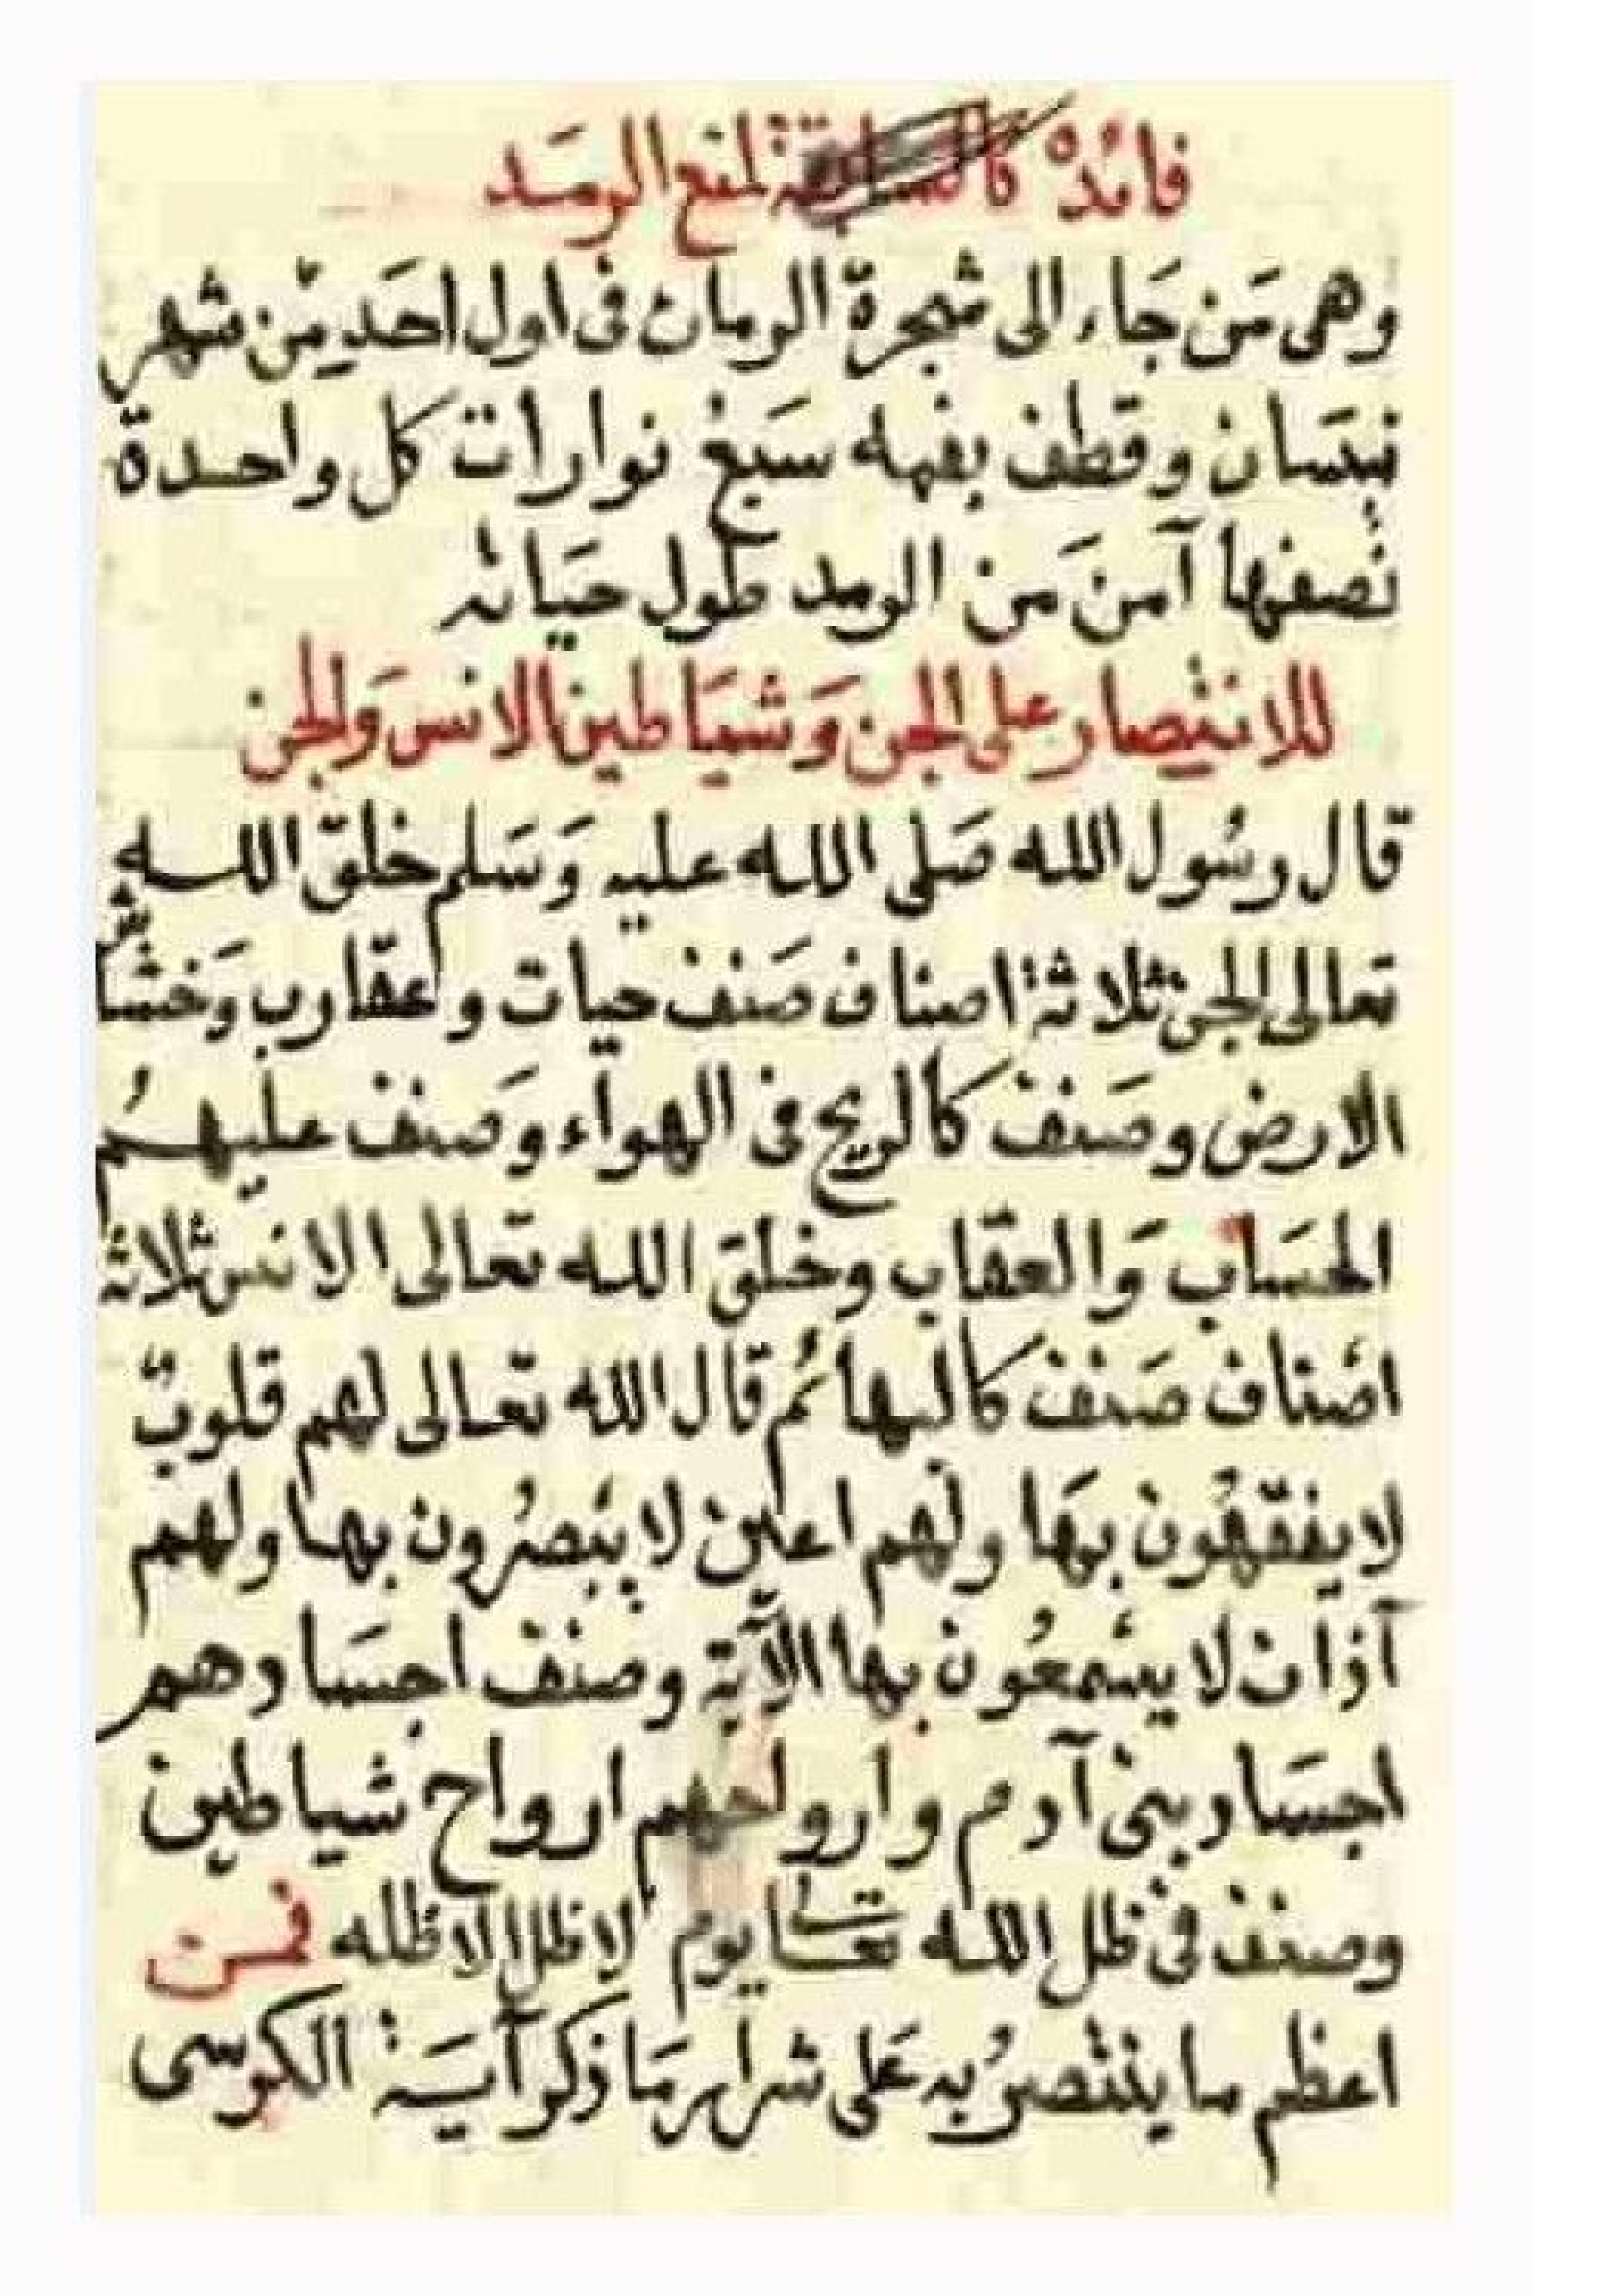 فائدة كالسابقة لمنع الرمد
وهى مَن جَاء الى شجرة الرمان فى اول احَدٍ مِّن شهر
نيسَان وقطف بفيه سَبعْ نوارات كل واحدة
نصفها آمنَ مَن الرمد طول حيَاته
للانتصار على الجن وَشيَاطين الانس وَالجن
قال رسُول الله صَلى الله عليه وَسَلم خلقَ الله
تعالى الجن ثلاثة اصناف صَنف حيات وعقارب وَخشاش
الارض وصَنف كالريح فى الهواء وَصنف عليهمُ
الحسَاب وَالعقاب وخلقَ الله تعالى الانس ثلاثة
اصناف صَنف كالبهائم قال الله تعالى لهم قلوبٌ
لا يفقهُون بهَا ولهم اعين لا يبصرُون بها ولهم
آذان لا يسمعُون بها الآية وصنف اجسَادهم
اجسَاد بنى آدم وارواحهم ارواح شياطين
وصنف فى ظل الله تعالى يوم لا ظل الا ظله فمن
اعظم ما ينتصرُ به عَلى شرار مَا ذكر آيَة الكرسى